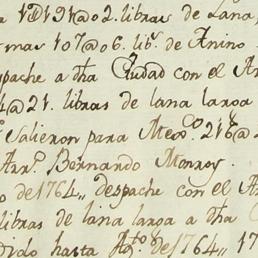 a 1@191@02. libras de Lana
mas 107@06. lib.s de Anino
spache a dha Ciudad con el Ar
4@21. libras de lana laroa
Salieron para Mexo. 216@2
Arro. Bernardo Monroy.
o de 1764,, despache con el A
libras de lana laroa a dha C
dido hasta Agto de 1764,, 17